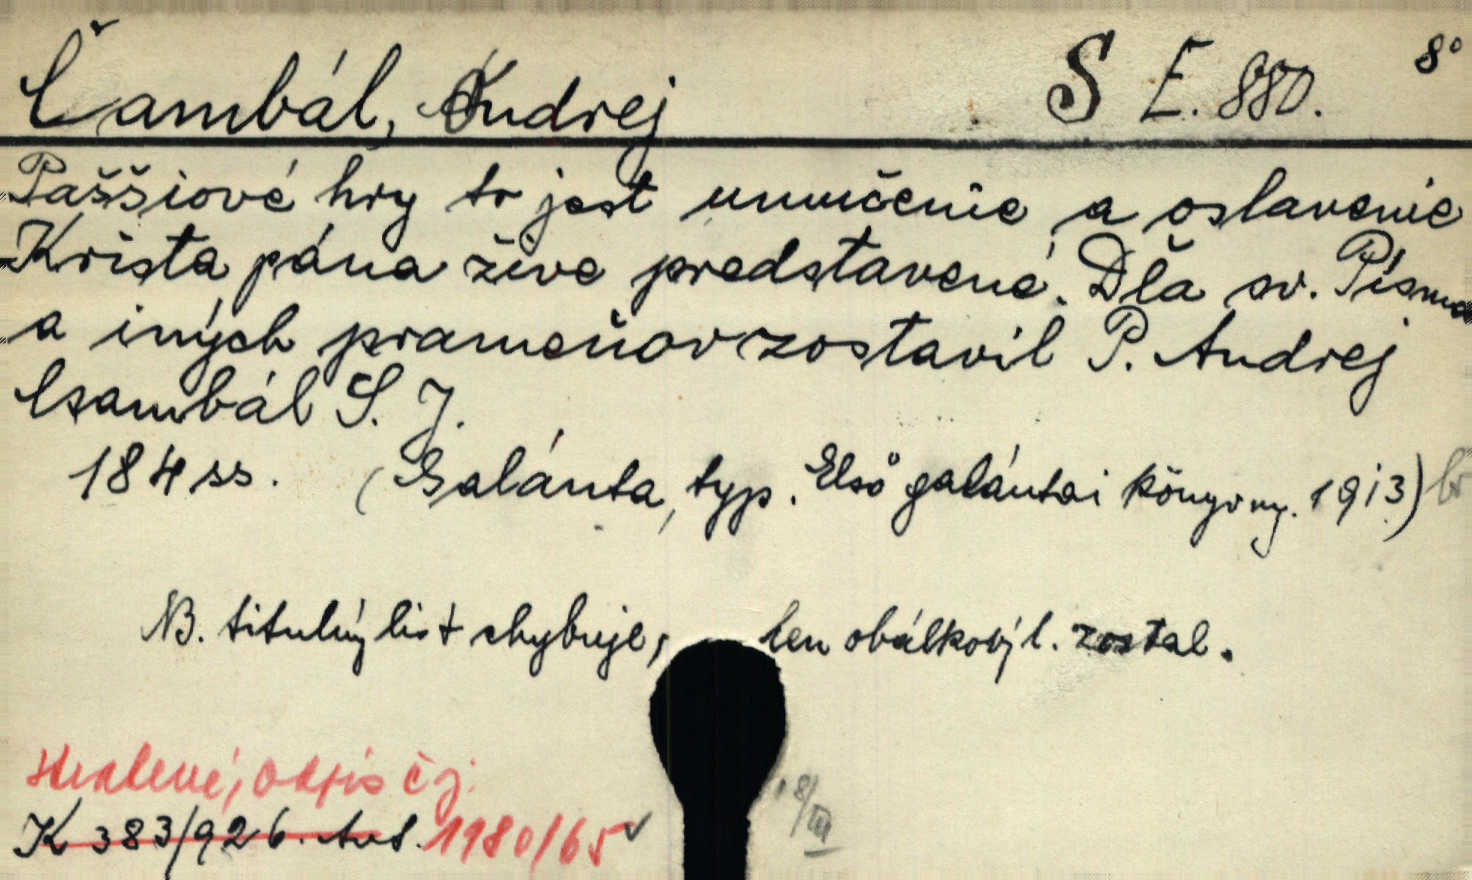 Čambál, Andrej S E. 880. 8°
Paššiové hry to jest umučenie a oslavenie
Krista pána živé predstavené. Dľa sv. Písma
a iných prameňov zostavil P. Andrej
Csambál S. J.
184 ss. (Galánta, typ. Első galántai könyvny. 1913) br
NB. titulný list chybuje, len obálkový l. zostal.
Stratené, odpis č j.
K 383/926. 1980/65
18/III